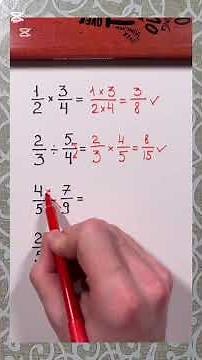 1/2 × 3/4 = 1×3/2×4 = 3/8 ✓
2/3 ÷ 5/4 = 2/3 × 4/5 = 8/15 ✓
4/5 7/9 =